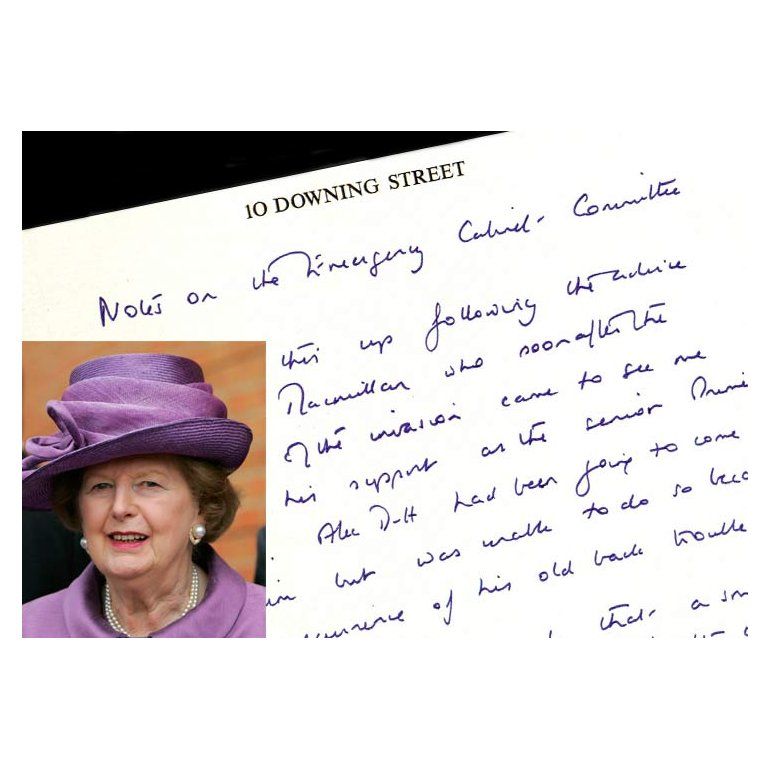 10 DOWNING STREET
Notes on the Emergency Cabinet Committee
this up following the advice
Macmillan who soon after the
of the invasion came to see me
his support as the senior Prime
Alec D-H had been going to come
but was unable to do so beca
currence of his old back trouble
that a sm